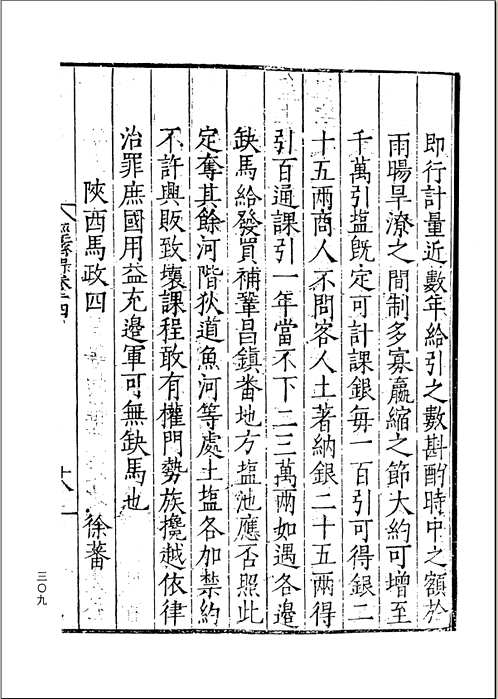 即行計量近數年給引之數斟酌時中之額於
雨暘旱潦之間制多寡嬴縮之節大約可增至
千萬引塩旣定可計課銀每一百引可得銀二
十五兩商人不問客人土著納銀二十五兩得
引百通課引一年當不下二三萬兩如遇各邊
缺馬給發買補鞏昌鎮畨地方塩池應否照此
定奪其餘河階狄道魚河等處土塩各加禁約
不許興販致壞課程敢有權門勢族攙越依律
治罪庶國用益充邊軍可無缺馬也
陝西馬政四 徐蕃
卷
十八
三〇九